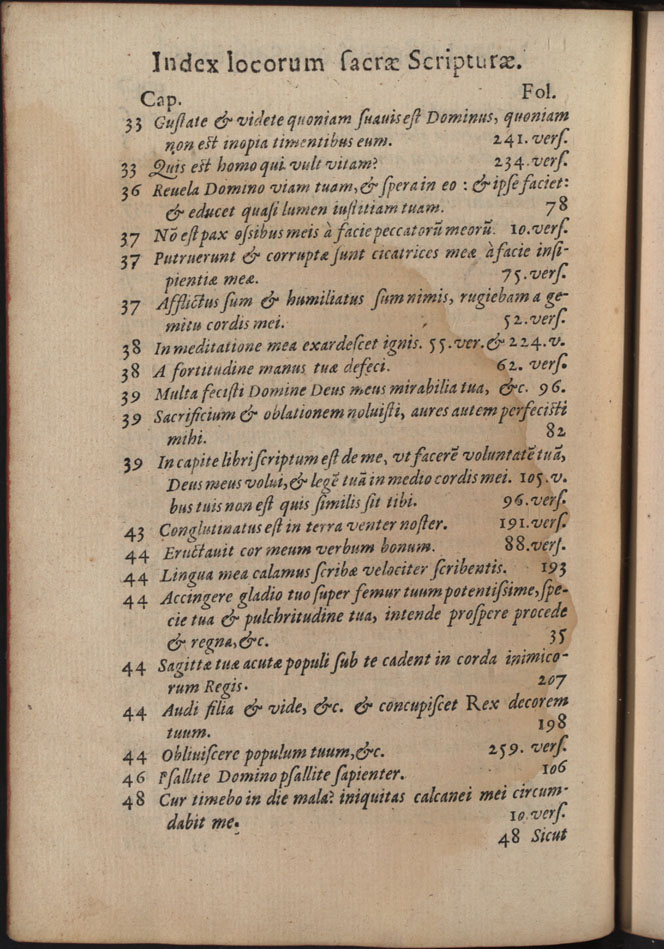 Index locorum ſacræ Scripturæ.
Cap. Fol.
33 Guſtate & videte quoniam ſuauis eſt Dominus, quoniam
non eſt inopia timentibus eum. 241. verſ.
33 Quis eſt homo qui vult vitam? 234. verſ.
36 Reuela Domino viam tuam, & ſpera in eo : & ipſe faciet:
& educet quaſi lumen iuſtitiam tuam. 78
37 Nō eſt pax oſſibus meis à facie peccatorū meorū. 10. verſ.
37 Putruerunt & corruptæ ſunt cicatrices meæ à facie inſi-
pientiæ meæ. 75. verſ.
37 Afflictus ſum & humiliatus ſum nimis, rugiebam a ge-
mitu cordis mei. 52. verſ.
38 In meditatione mea exardeſcet ignis. 55. ver. & 224. v.
38 A fortitudine manus tuæ defeci. 62. verſ.
39 Multa feciſti Domine Deus meus mirabilia tua, &c. 96.
39 Sacrificium & oblationem noluiſti, aures autem perfeciſti
mihi. 82
39 In capite libri ſcriptum eſt de me, vt facerē voluntatē tuā,
Deus meus volui, & legē tuā in medio cordis mei. 105. v.
bus tuis non eſt quis ſimilis ſit tibi. 96. verſ.
43 Conglutinatus eſt in terra venter noſter. 191. verſ.
44 Eructauit cor meum verbum bonum. 88. verſ.
44 Lingua mea calamus ſcribæ velociter ſcribentis. 193
44 Accingere gladio tuo ſuper femur tuum potentiſſime, ſpe-
cie tua & pulchritudine tua, intende proſpere procede
& regna, &c. 35
44 Sagittæ tuæ acutæ populi ſub te cadent in corda inimico-
rum Regis. 207
44 Audi filia & vide, &c. & concupiſcet Rex decorem
tuum. 198
44 Obliuiſcere populum tuum, &c. 259. verſ.
46 Pſallite Domino pſallite ſapienter. 106
48 Cur timebo in die mala? iniquitas calcanei mei circum-
dabit me. 10. verſ.
48 Sicut